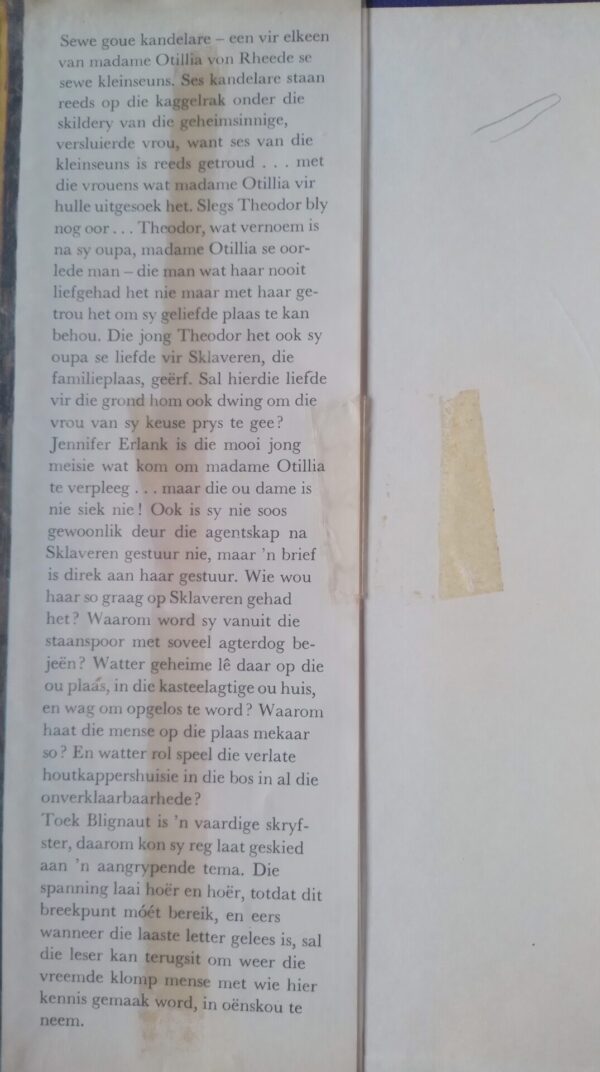 Sewe goue kandelare – een vir elkeen
van madame Otillia von Rheede se
sewe kleinseuns. Ses kandelare staan
reeds op die kaggelrak onder die
skildery van die geheimsinnige,
versluierde vrou, want ses van die
kleinseuns is reeds getroud . . . met
die vrouens wat madame Otillia vir
hulle uitgesoek het. Slegs Theodor bly
nog oor . . . Theodor, wat vernoem is
na sy oupa, madame Otillia se oor-
lede man – die man wat haar nooit
liefgehad het nie maar met haar ge-
trou het om sy geliefde plaas te kan
behou. Die jong Theodor het ook sy
oupa se liefde vir Sklaveren, die
familieplaas, geërf. Sal hierdie liefde
vir die grond hom ook dwing om die
vrou van sy keuse prys te gee?
Jennifer Erlank is die mooi jong
meisie wat kom om madame Otillia
te verpleeg . . . maar die ou dame is
nie siek nie! Ook is sy nie soos
gewoonlik deur die agentskap na
Sklaveren gestuur nie, maar 'n brief
is direk aan haar gestuur. Wie wou
haar so graag op Sklaveren gehad
het? Waarom word sy vanuit die
staanspoor met soveel agterdog be-
jeën? Watter geheime lê daar op die
ou plaas, in die kasteelagtige ou huis,
en wag om opgelos te word? Waarom
haat die mense op die plaas mekaar
so? En watter rol speel die verlate
houtkappershuisie in die bos in al die
onverklaarbaarhede?
Toek Blignaut is 'n vaardige skryf-
ster, daarom kon sy reg laat geskied
aan 'n aangrypende tema. Die
spanning laai hoër en hoër, totdat dit
breekpunt móét bereik, en eers
wanneer die laaste letter gelees is, sal
die leser kan terugsit om weer die
vreemde klomp mense met wie hier
kennis gemaak word, in oënskou te
neem.